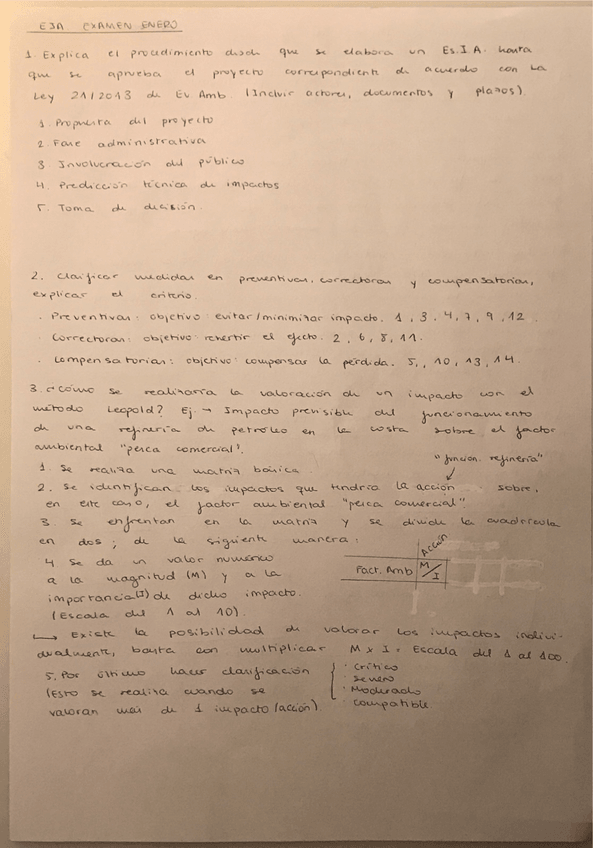 EIA EXAMEN ENERO
1. Explica el procedimiento desde que se elabora un Es.I.A. hasta
que se aprueba el proyecto correspondiente de acuerdo con la
Ley 21/2013 de Ev. Amb. (Incluir actores, documentos y plazos).
1. Propuesta del proyecto
2. Fase administrativa
3. Involucración del público
4. Predicción técnica de impactos
5. Toma de decisión.
2. Clasificar medidas en preventivas, correctoras y compensatorias,
explicar el criterio.
· Preventivas: objetivo: evitar/minimizar impacto. 1, 3, 4, 7, 9, 12.
· Correctoras: objetivo: revertir el efecto. 2, 6, 8, 11.
· Compensatorias: objetivo: compensar la pérdida. 5, 10, 13, 14.
3. ¿Cómo se realizaría la valoración de un impacto con el
método Leopold? Ej. → Impacto previsible del funcionamiento
de una refinería de petróleo en la costa sobre el factor
ambiental "pesca comercial".
1. Se realiza una matriz básica.
"función. refinería"
2. Se identifican los impactos que tendría la acción sobre,
en este caso, el factor ambiental "pesca comercial".
3. Se enfrentan en la matriz y se divide la cuadrícula
en dos; de la siguiente manera:
Acción
Fact. Amb M/I
4 Se da un valor numérico
a la magnitud (M) y a la
importancia (I) de dicho impacto.
(Escala del 1 al 10).
↳ Existe la posibilidad de valorar los impactos indivi-
dualmente, basta con multiplicar M x I = Escala del 1 al 100.
5. Por último hacer clasificación
(Esto se realiza cuando se
valoran más de 1 impacto/acción)
· Crítico
· Severo
· Moderado
· Compatible